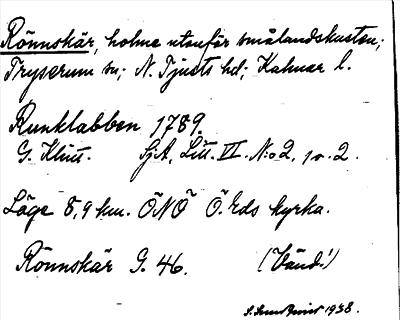 Rönnskär, holme utanför smålandskusten;
Tryserum sn; N. Tjusts hd; Kalmar l.
Runklabben 1789.
G. Klint. SjA, Litt. VI. No 2, 1 o. 2.
Läge 8,9 km. ÖNÖ Ö. Eds kyrka.
Rönnskär G. 46. (Vänd!)
1938.